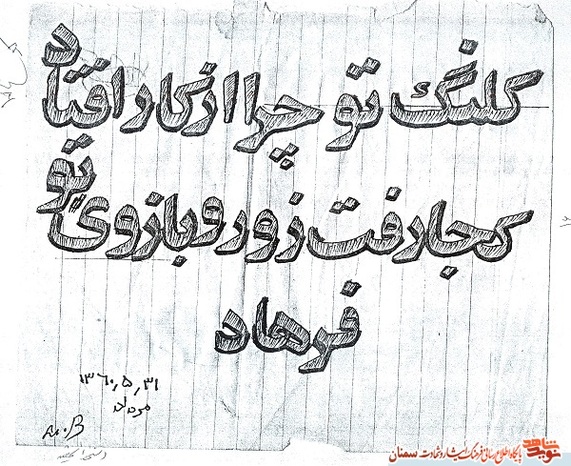 کلنگ تو چرا از کار افتاد
کجا رفت زور و بازوی تو
فرهاد
۱۳۶۰٫۵٫۳۱
مرداد
M.B
نوید شاهد
پایگاه اطلاع رسانی فرهنگ ایثار و شهادت سمنان